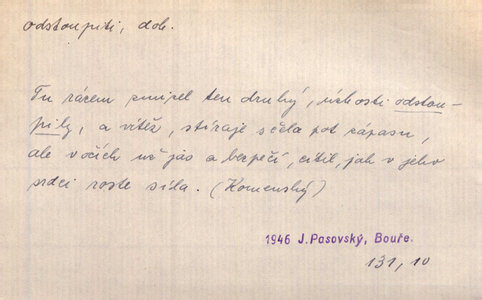 odstoupiti, dok.
Tu rázem zmizel ten druhý, úzkosti odstou-
pily, a vítěz, stíraje s čela pot zápasu,
ale v očích už jas a bezpečí, cítil, jak v jeho
srdci roste síla. (Komenský)
1946 J.Pasovský, Bouře.
131, 10